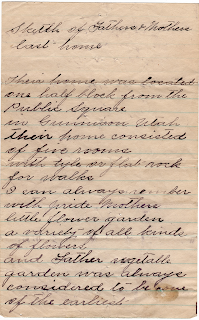 Sketch of Father & Mothers
last home
Their home was located
one half block from the
Public Square
in Gunnison Utah
their home consisted
of five rooms
with tyle or flat rock
for walks
I can always remember
with pride Mothers
little flower garden
a variety of all kinds
of flowers
and Father vegetable
garden was always
considered to be one
of the earliest